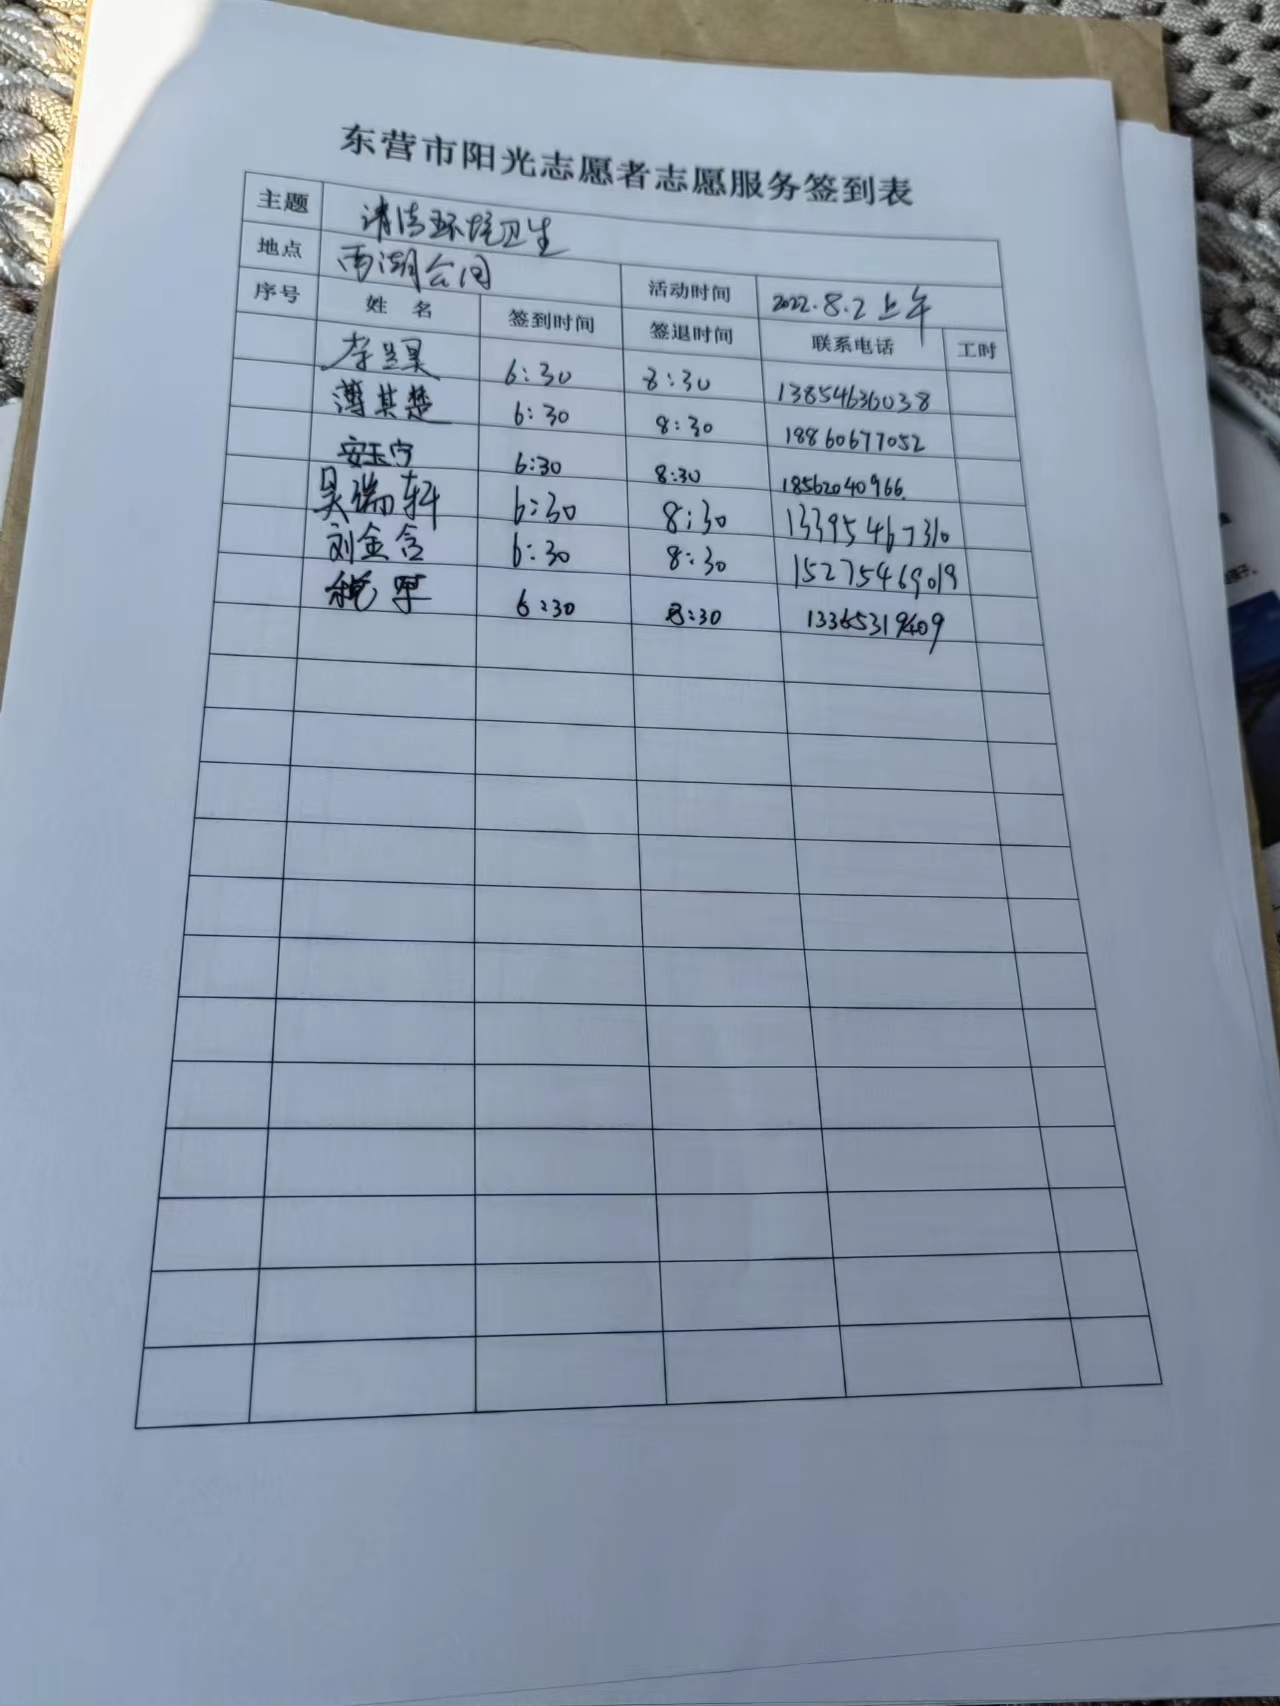 东营市阳光志愿者志愿服务签到表
主题 清洁环境卫生
地点 西湖公园 活动时间 2022.8.2上午
序号 姓名 签到时间 签退时间 联系电话 工时
李昊 6:30 8:30 13854636038
薄其楚 6:30 8:30 18860677052
安玉宁 6:30 8:30 18562040966
吴瑞轩 6:30 8:30 13395467310
刘金含 6:30 8:30 15275469019
6:30 8:30 13365319409